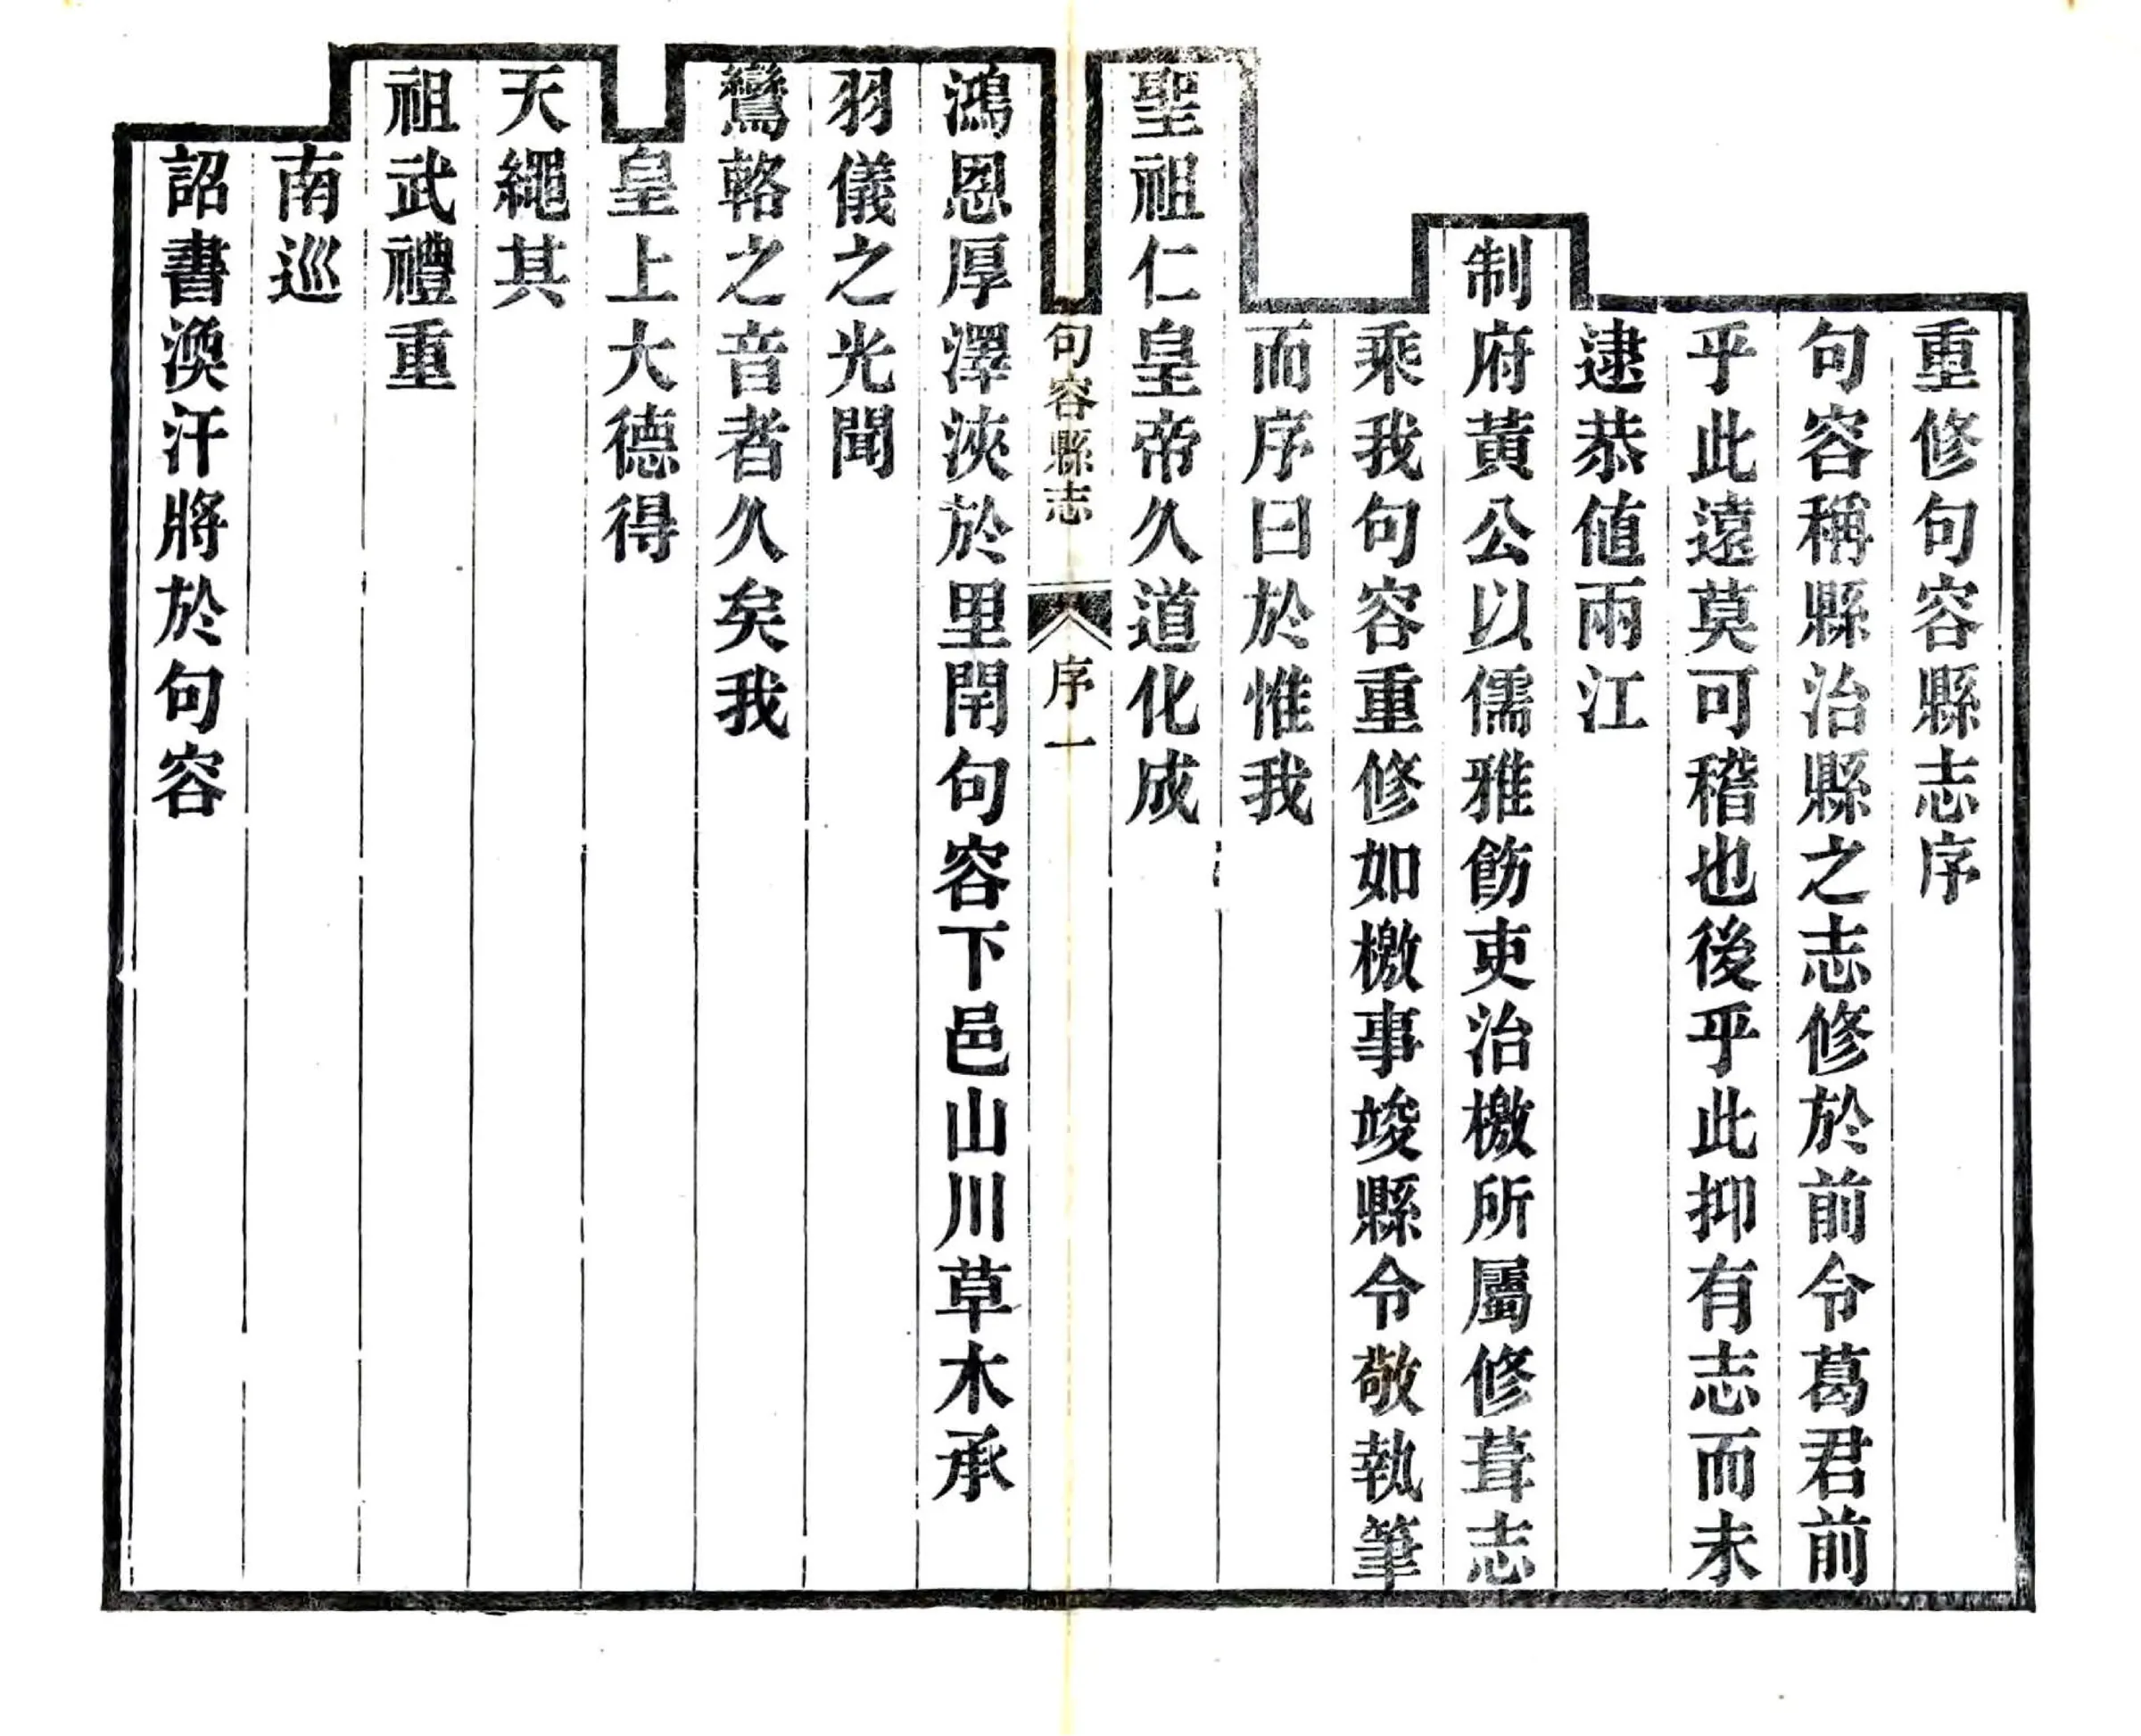 重修句容縣志序
句容稱縣治縣之志修於前令葛君前
乎此遠莫可稽也後乎此抑有志而未
逮恭値兩江
制府黃公以儒雅飭吏治檄所屬修葺志
乘我句容重修如檄事竣縣令敬執筆
而序曰於惟我
聖祖仁皇帝久道化成
句容縣志 序 一
鴻恩厚澤浹於里閈句容下邑山川草木承
羽儀之光聞
鸞輅之音者久矣我
皇上大德得
天繩其
祖武禮重
南巡
詔書渙汗將於句容